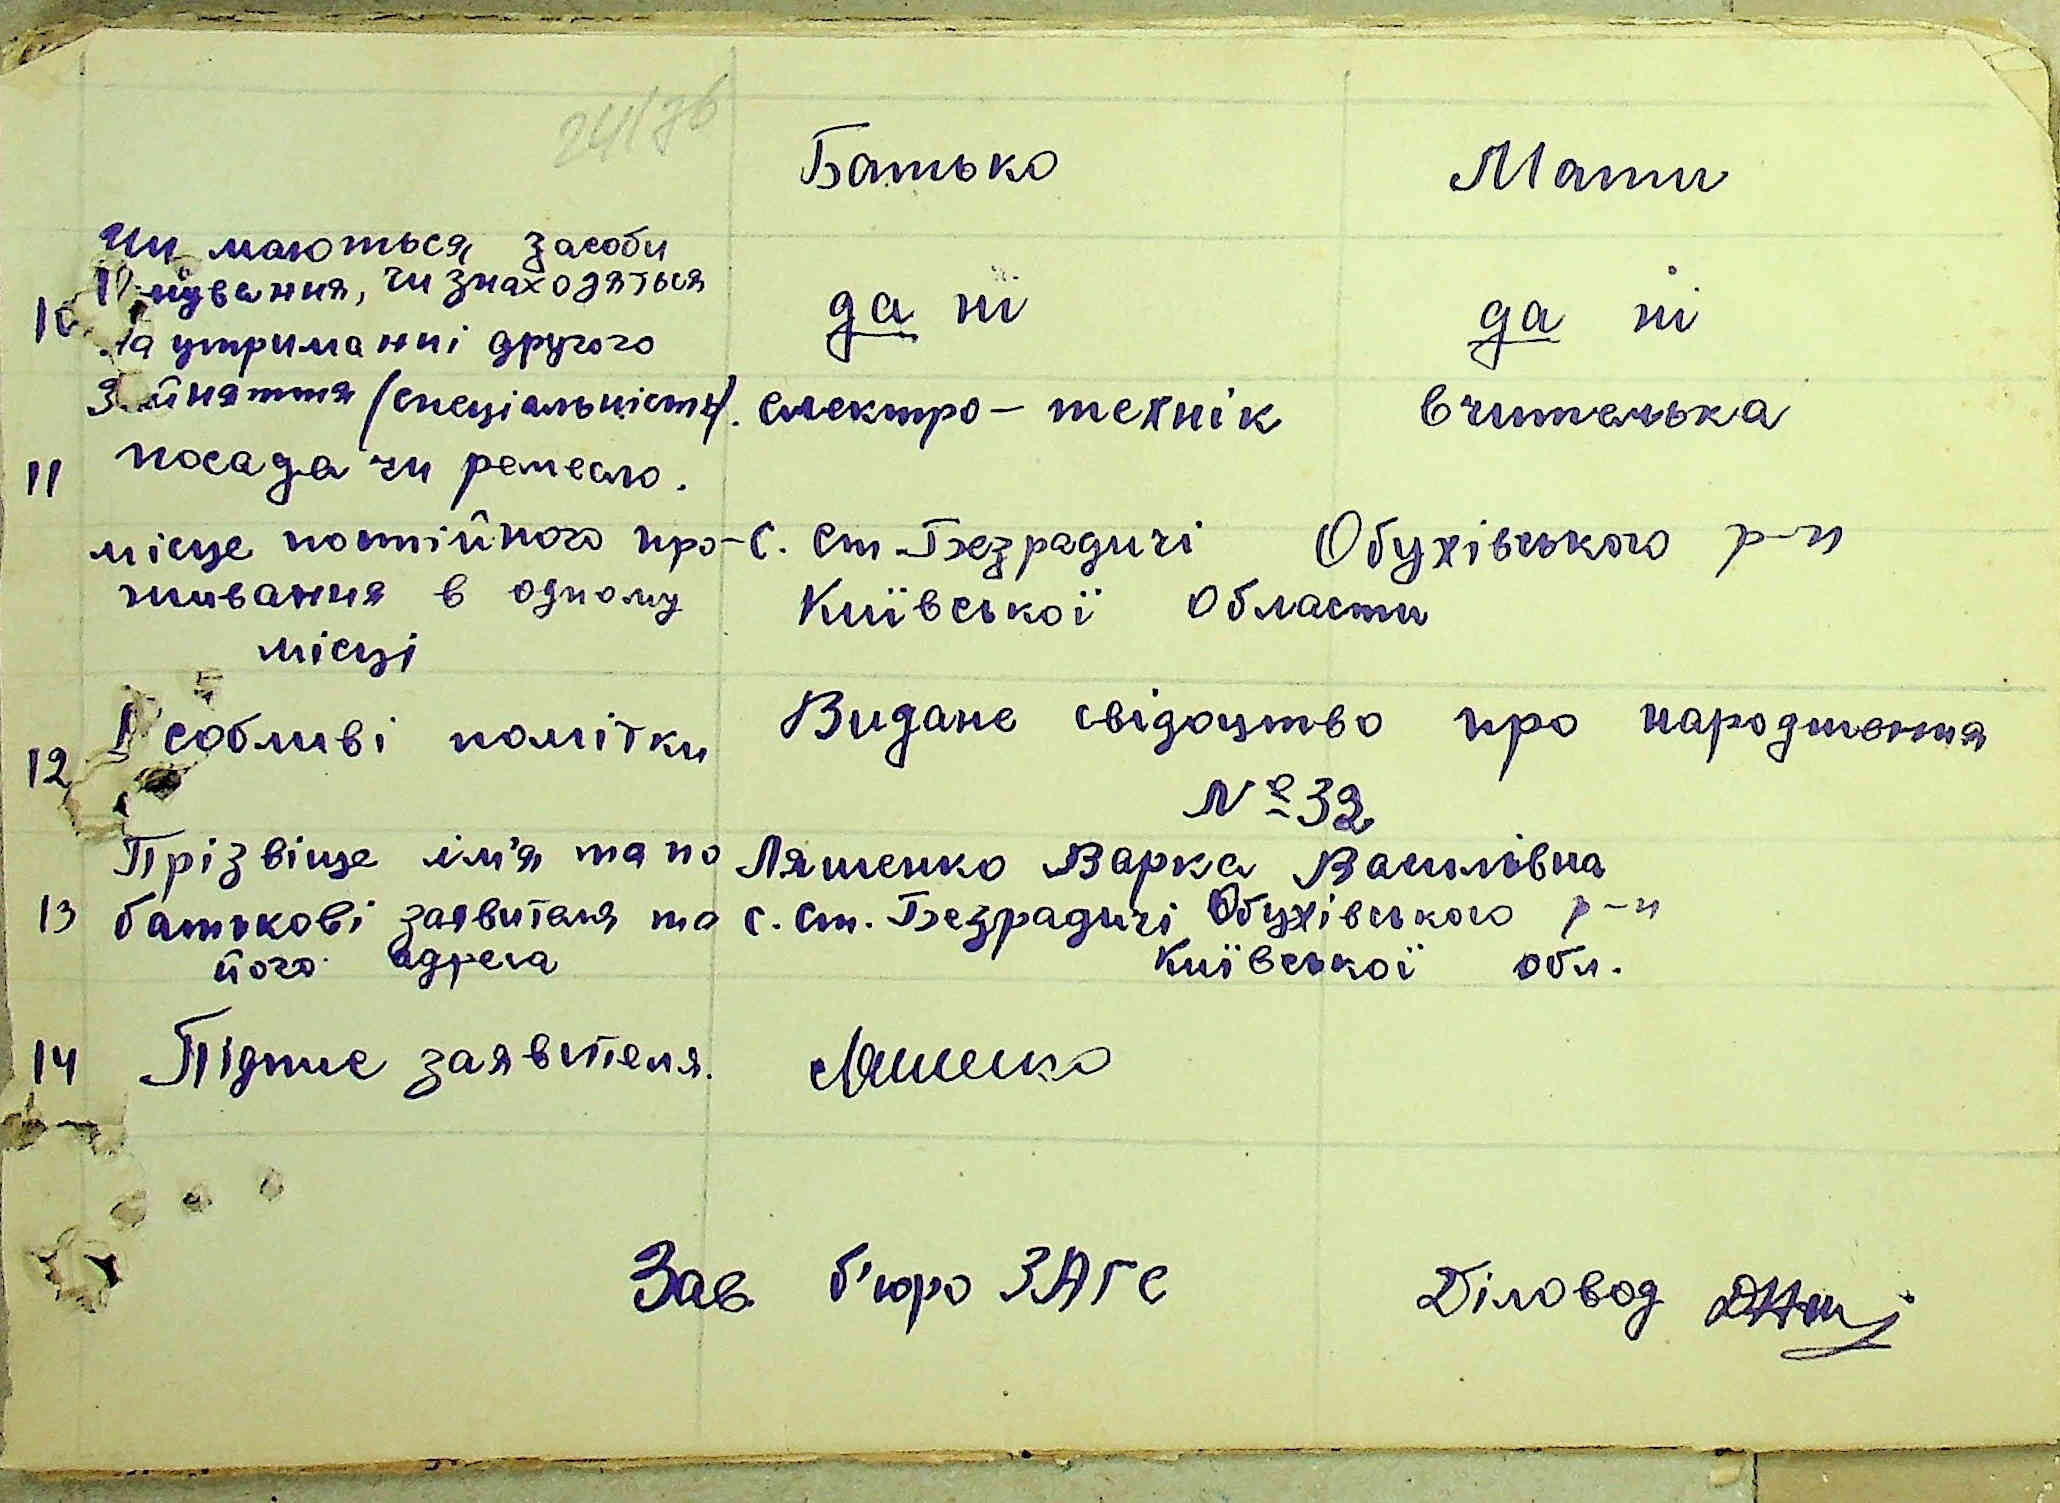 24/76
Батько Мати
Чи маються засоби
нування, чи знаходяться
10 на утриманні другого да ні да ні
Зайняття (спеціальність). електро-технік вчителька
11 посада чи ремесло.
місце постійного про- с. Ст. Безрадичі Обухівського р-н
живання в одному Київської Області
місці
12 Особливі помітки Видане свідоцтво про народження
№ 32
Прізвіще ім'я та по Ляшенко Варка Василівна
13 батькові заявителя та с. Ст. Безрадичі Обухівського р-н
його адреса Київської обл.
14 Підпис заявителя. Ляшенко
Зав. б'юро ЗАГС Діловод